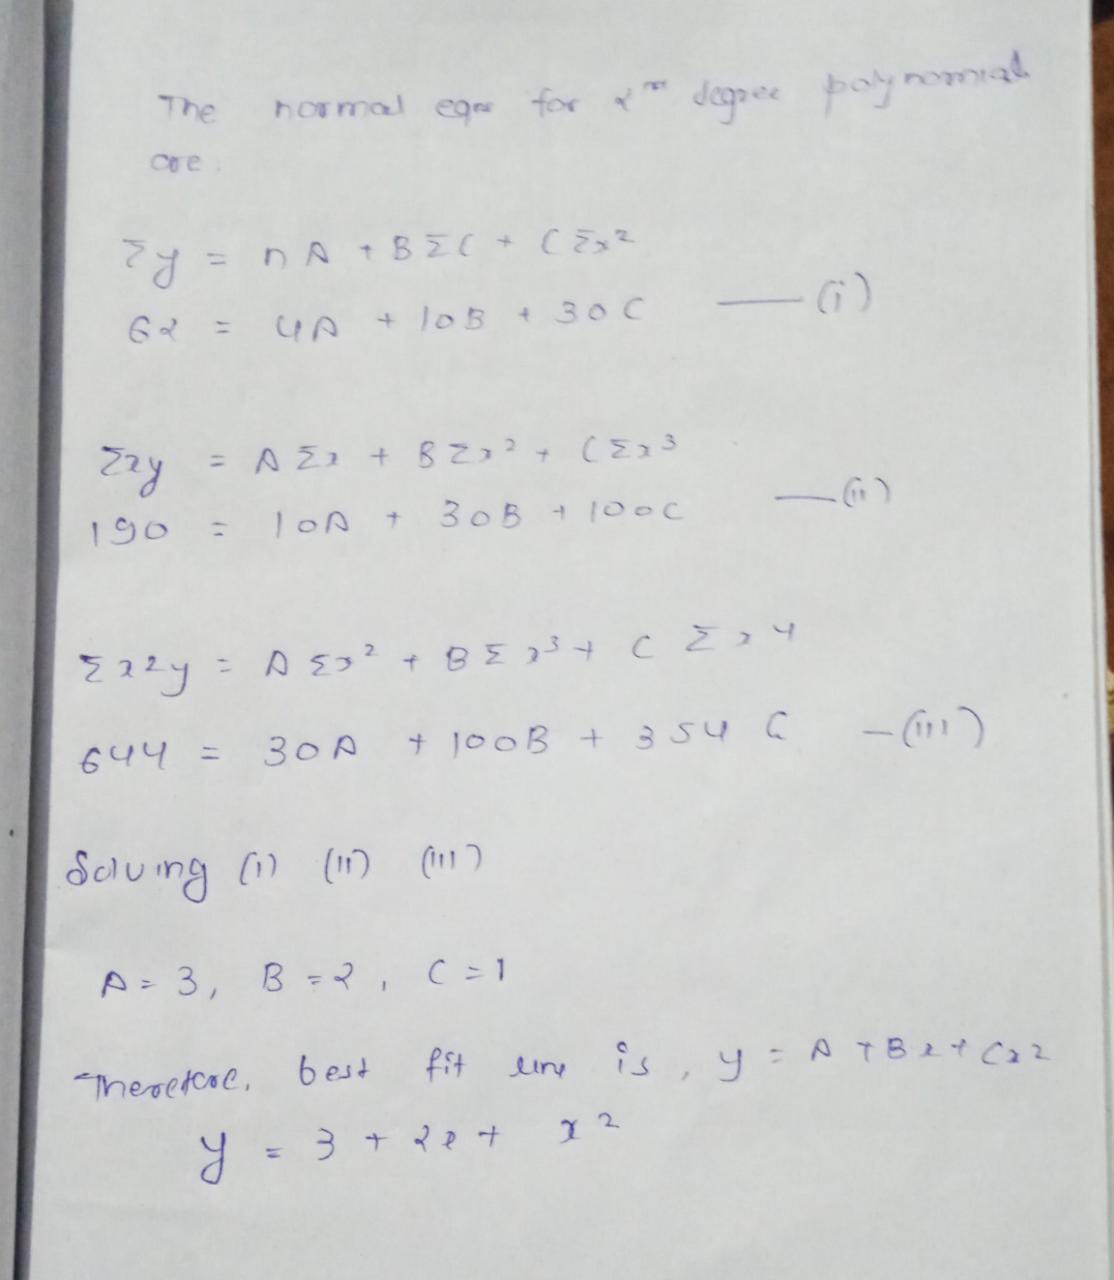 The normal eqns for 2nd degree polynomial
are.
Σy = nA + BΣC + CΣx²
62 = 4A + 10B + 30C — (i)
Σxy = AΣx + BΣx² + CΣx³
190 = 10A + 30B + 100C — (ii)
Σx2y = AΣx² + BΣx³ + CΣx4
644 = 30A + 100B + 354C — (iii)
Solving (i) (ii) (iii)
A = 3, B = 2, C = 1
Therefore, best fit line is, y = A + Bx + Cx2
y = 3 + 2x + x²